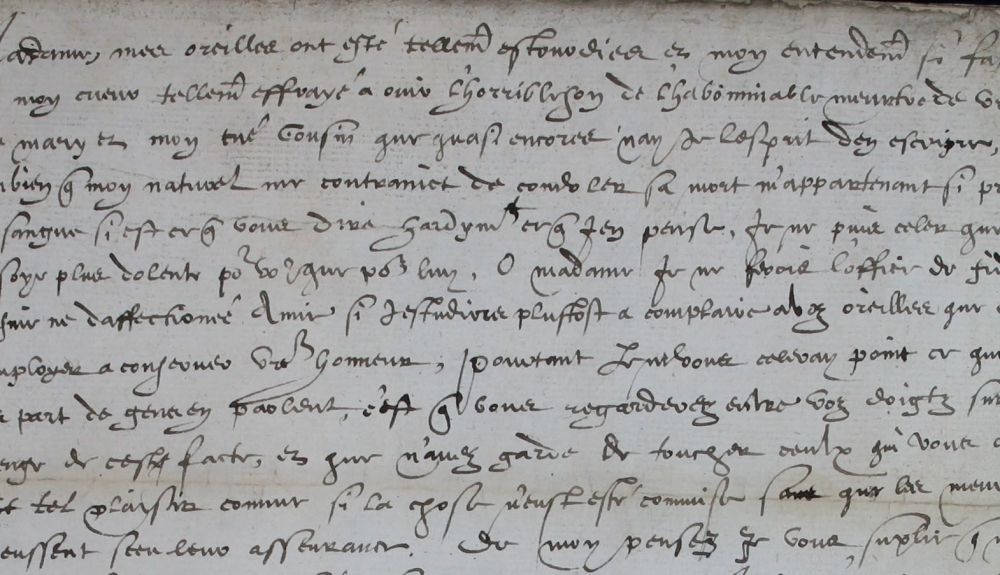 Madame, mes oreilles ont esté tellemt estourdies et mon entendemt si fa
mon cueur tellemt effrayé a ouir l'horrible son de l'habominable meurtre de v
mary et mon tué Cousin que quasi encores n'ay Je l'esprit d'en escripre,
bien q mon naturel me contrainct de condoler sa mort m'appartenant si pr
sangue si est ce q vous dire hardymt ce q J'en pense, Je ne puis celer que
soye plus dolente por vos que por luy. O madame Je ne ferois l'office de fid
ne d'affectionée Amie si J'estudiois plustost a complaire a voz oreilles que
mployer a conserver vre honneur, pourtant Je ne vous celeray point ce que
part de gens en parlent, c'est q vous regarderez entre voz doigtz
enge de cest facte, et que n'avez garde de toucher ceulx qui vous
tel plaisir comme si la chose n'eust esté commise sans que les meur
eussent sceu leur asseurance. De moy pensez Je vous suplie q